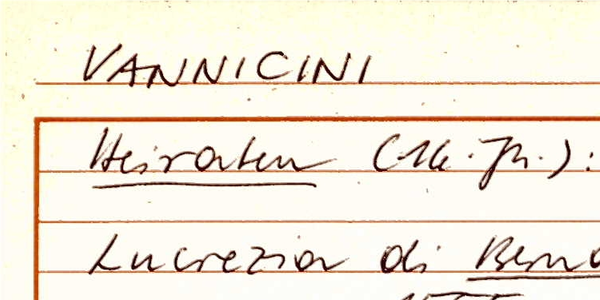 VANNICINI
Heiraten (16. Jh.):
Lucrezia di